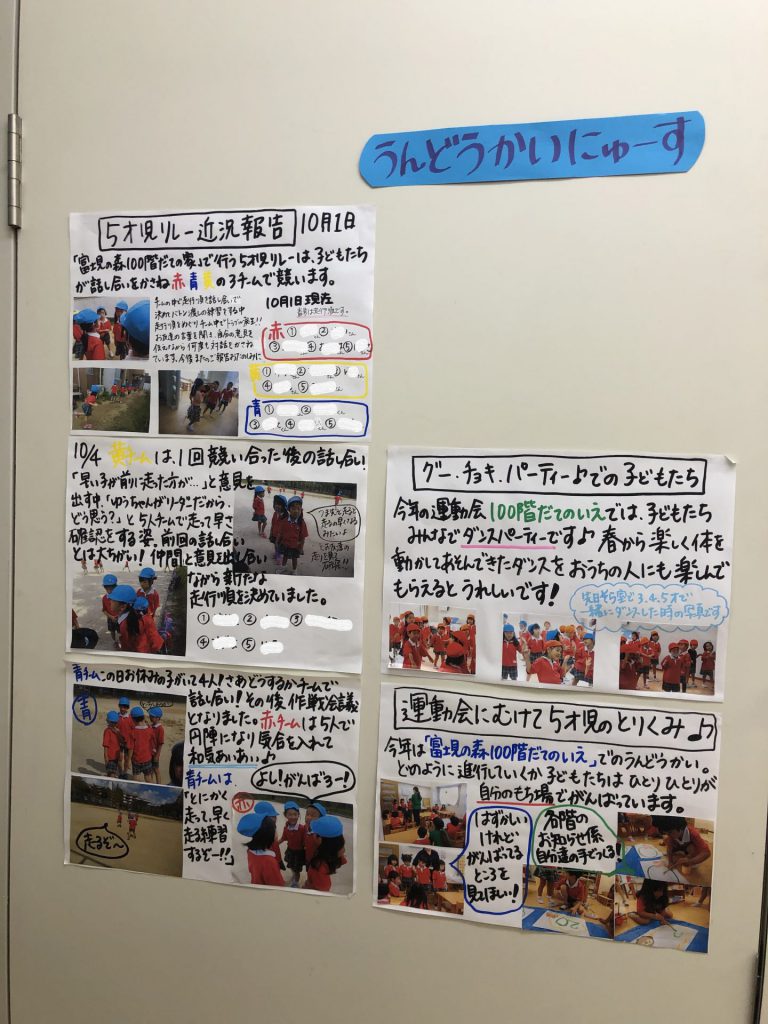 うんどうかいにゅーす
5才児リレー近況報告 10月1日
「富士見の森100階だての家」で行う5才児リレーは、子どもたち
が話し合いをかさね赤青黄の3チームで競います。
チームの中で走行順を話し合いで
決めてバトン渡しの練習をする中
お友達の言葉を聞き、自分の意見を
伝えながら何度も対話をかさね
ています。
10月1日現在
赤 ① ②
③ ④ ⑤
黄 ① ② ③
④ ⑤
青 ① ②
③ ④ ⑤
10/4 黄チームは、1回競い合った後の話し合い!
「早い子が前に走った方が…」と意見を
出す中、「ゆうちゃんがリーダーだから、
どう思う?」と5人チームで走って早さ
確認をする姿、前回の話し合い
とは大ちがい!仲間と意見を出し合い
ながら新たな
走行順を決めていました。
① ② ③
④ ⑤
青チームこの日お休みの子がいて4人!さあどうするかチームで
話し合い!その後作戦会議
となりました。赤チームは5人で
円陣になり気合を入れて
和気あいあい♪
青
青チームは、
「とにかく
走って、早く
走る練習
するぞー!!」
よし!がんばろー!
赤
走るぞ〜
グー・チョキ・パーティー♪での子どもたち
今年の運動会100階だてのいえでは、子どもたち
みんなでダンスパーティーです♪ 春から楽しく体を
動かしてあそんできたダンスをおうちの人にも楽しんで
もらえるとうれしいです!
先日そら室で3.4.5才で
一緒にダンスした時の写真です
運動会にむけて5才児のとりくみ♪
今年は「富士見の森100階だてのいえ」でのうんどうかい。
どのように進行していくか子どもたちはひとりひとりが
自分のもち場でがんばっています。
はずかしい
けれど
がんばってる
ところを
見てほしい!
各階の
お知らせ係
自分達の手でつくる!
20